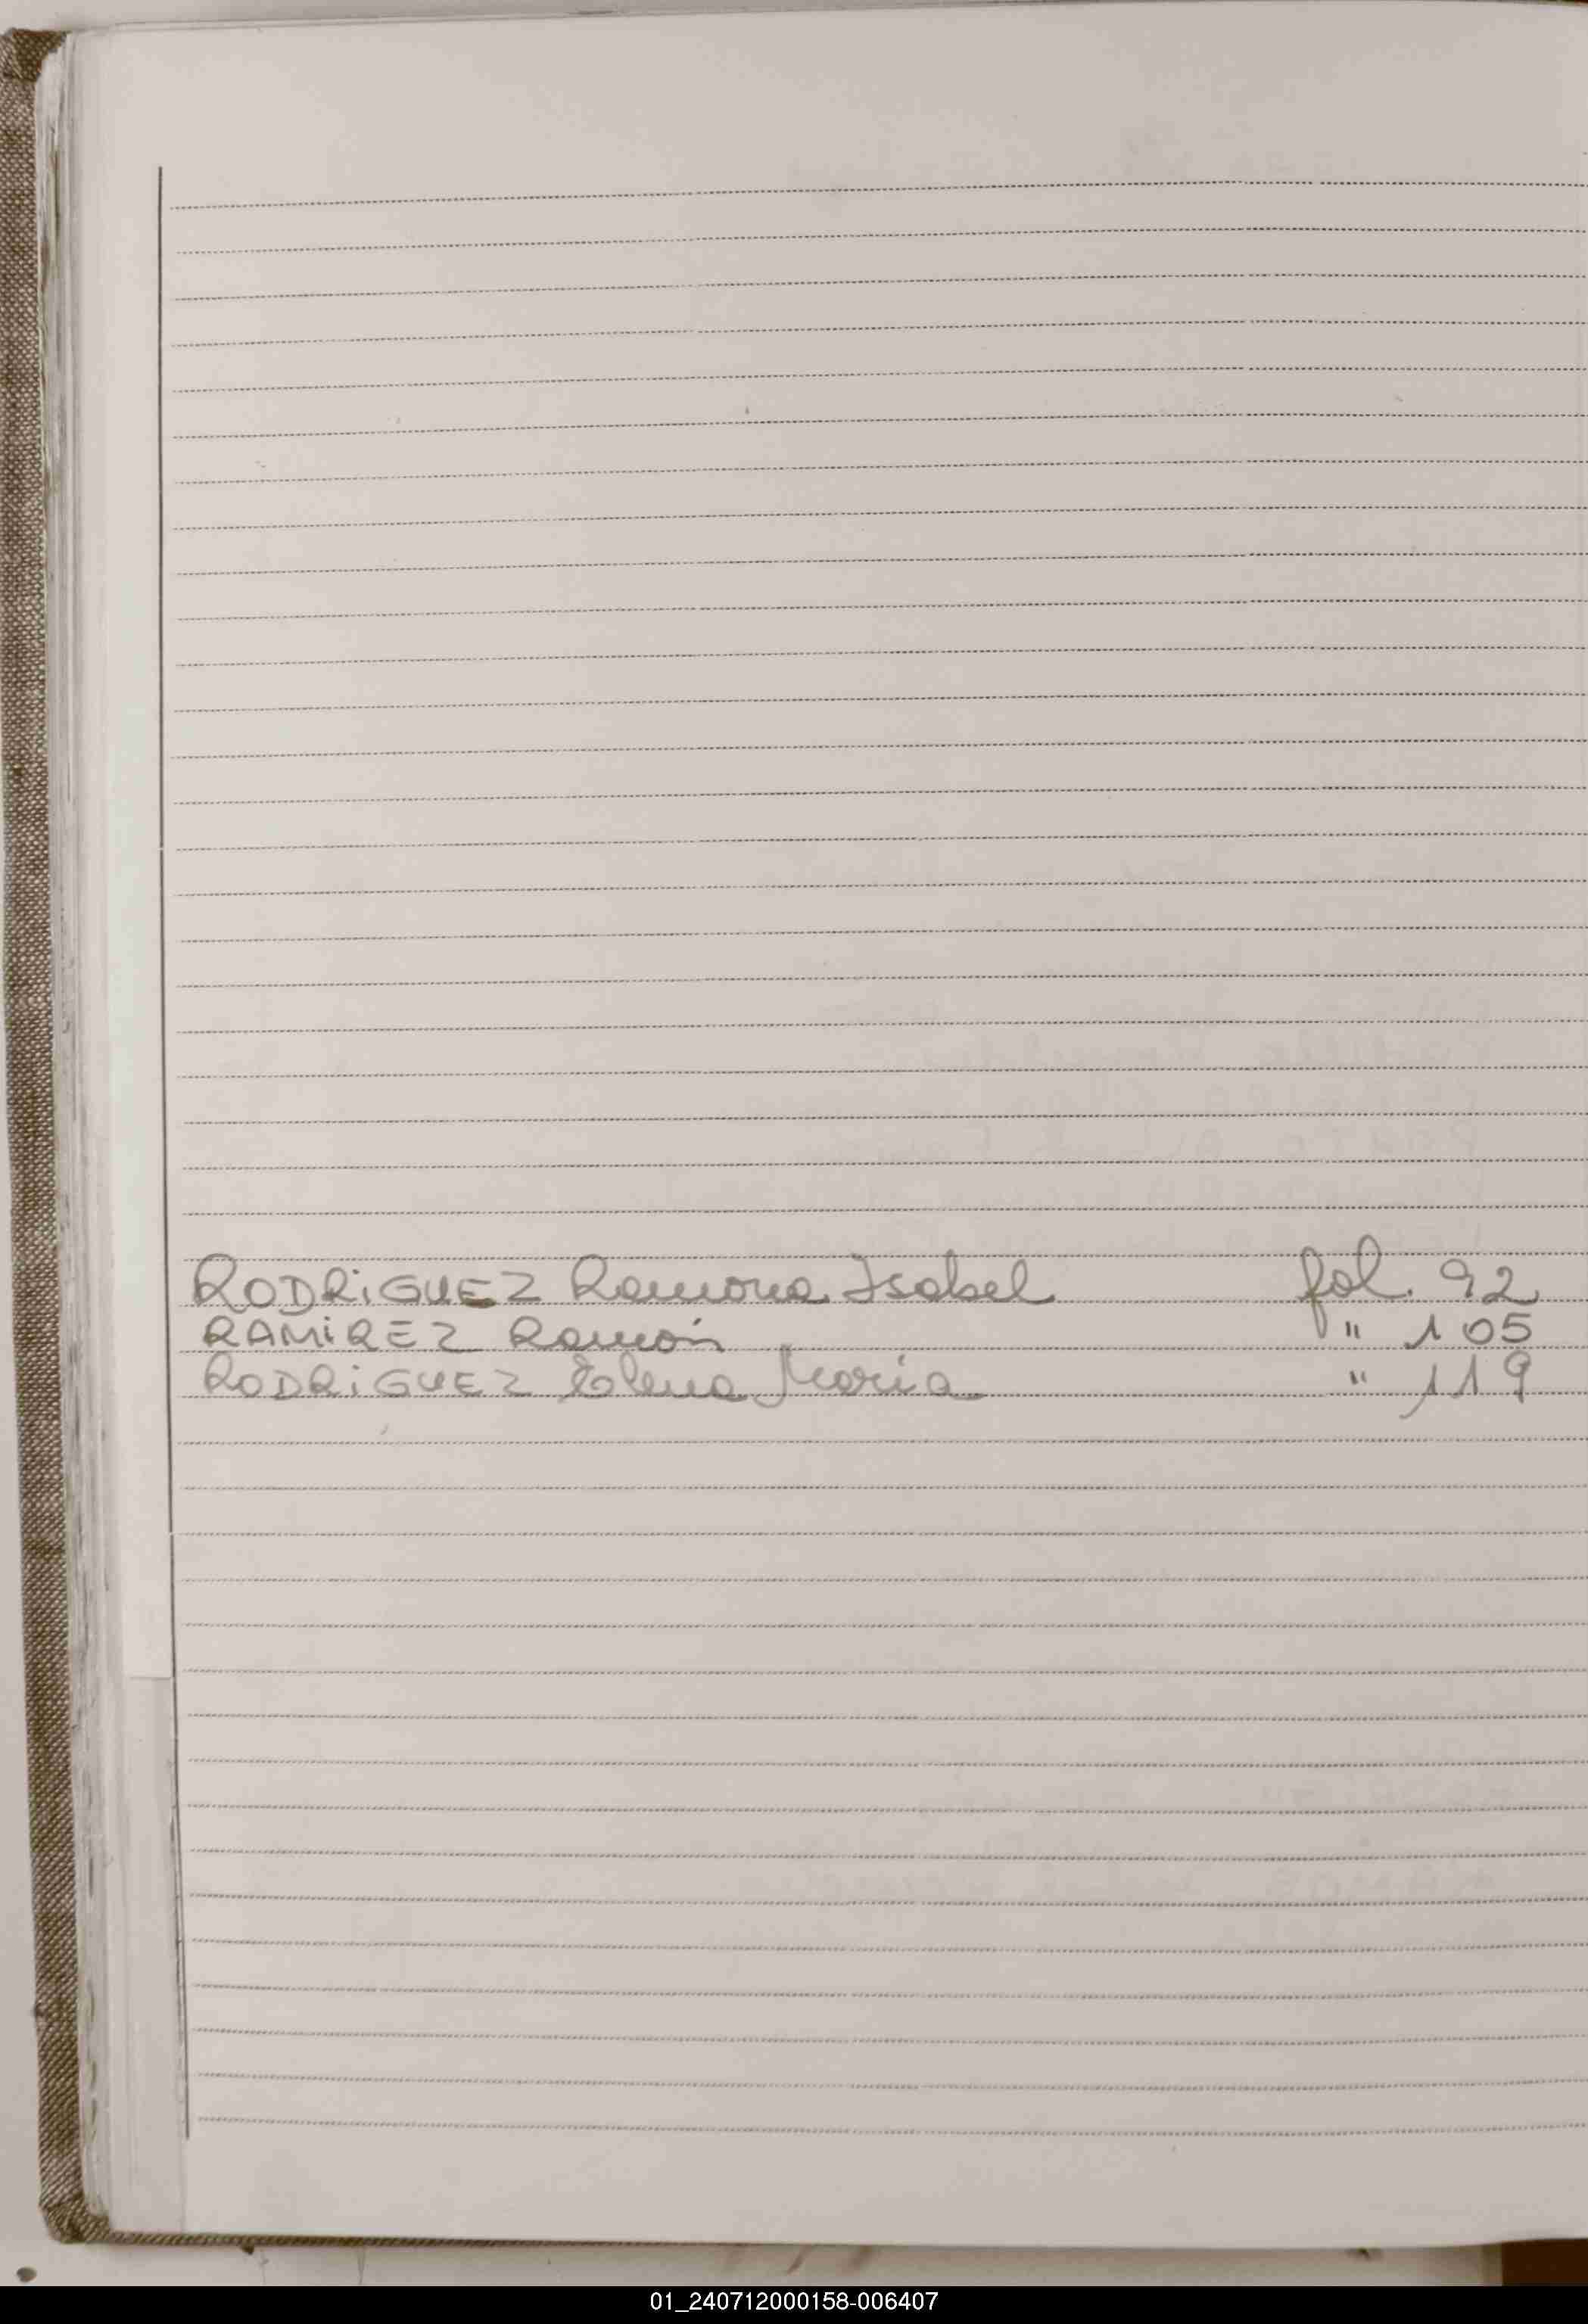 RODRiGUEZ Ramona Isabel fol. 92
RAMiREZ Ramón " 105
RODRiGUEZ Elena María " 119
01_240712000158-006407